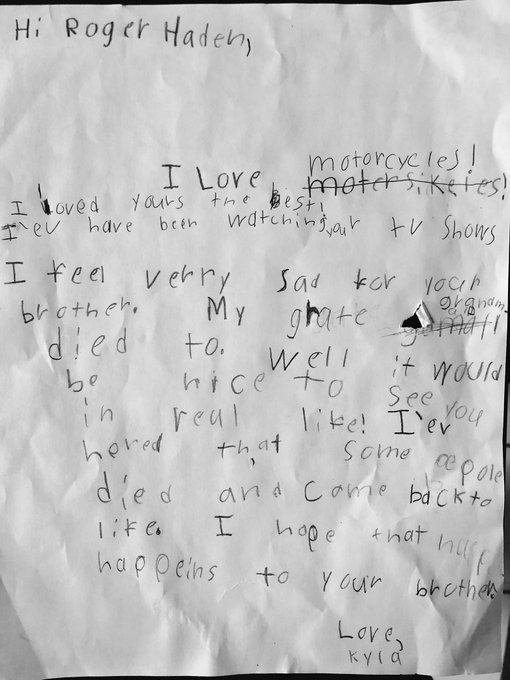 Hi Roger Haden,
motorcycles!
I Love motersikeles!
I Loved yours the Best!
I'ev have been watching your tv shows
I feel verry sad for your
brother. My grate grandma
died to. Well it would
be nice to see you
in real like! I'ev
hered that some pepole
died and came back to
like. I hope that
happeins to your brother.
Love,
Kyla